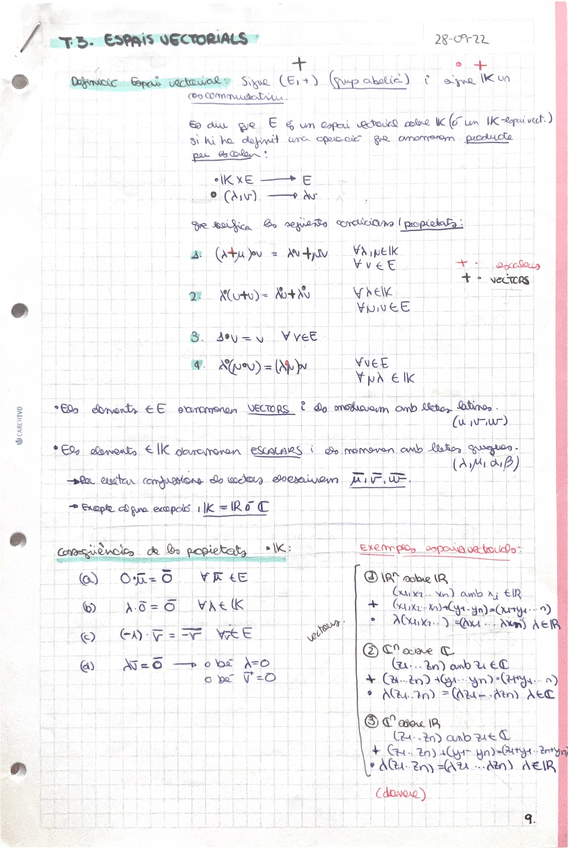 T.3. ESPAIS VECTORIALS
28-09-22
+
• +
Definició Espai vectorial: Sigui (E,+) (grup abelià) i sigui IK un
cos commutatiu.
Es diu que E és un espai vectorial sobre IK (ó un IK-espai vect.)
si hi ha definit una operació que anomenarem producte
per escalar:
• IK x E → E
• (λ,v) → λv
que verifica les següents condicions/propietats:
1. (λ+μ)•v = λv+μv ∀λ,μ∈IK
∀v∈E
+ · escalars
+ · VECTORS
2. λ•(u+v) = λu+λv ∀λ∈IK
∀u,v∈E
3. 1•v = v ∀v∈E
4. λ•(μ•v) = (λμ)•v ∀v∈E
∀μ,λ∈IK
• Els elements ∈ E s'anomenen VECTORS i els amb lletres llatines.
(u,v,w)
• Els elements ∈ IK s'anomenen ESCALARS i els amb lletres gregues.
(λ,μ,α,β)
→ Per evitar confusions els vectors escriurem u̅, v̅, w̅.
→ Excepte alguna excepció, IK = IR ó ℂ
CARCHIVO
Conseqüències de les propietats • IK:
(a) 0·u̅ = 0̅ ∀u̅∈E
(b) λ·0̅ = 0̅ ∀λ∈IK
(c) (-λ)·v̅ = -v̅ ∀v̅∈E
(d) λv̅ = 0̅ → o bé λ=0
o bé v̅=0
Exemples espais vectorials:
vectors.
① IRⁿ sobre IR
(x₁,x₂...xₙ) amb xᵢ∈IR
+ (x₁,x₂..xₙ)+(y₁..yₙ)=(x₁+y₁...n)
• λ(x₁,x₂...)=(λx₁...λxₙ) λ∈IR
② ℂⁿ sobre ℂ
(z₁...zₙ) amb z₁∈ℂ
+ (z₁...zₙ)+(y₁...yₙ)=(z₁+y₁...n)
• λ(z₁..zₙ)=(λz₁...λzₙ) λ∈ℂ
③ ℂⁿ sobre IR
(z₁...zₙ) amb z₁∈ℂ
+ (z₁..zₙ)+(y₁...yₙ)=(z₁+y₁...zₙ+yₙ)
• λ(z₁..zₙ)=(λz₁...λzₙ) λ∈IR
(darrere)
9.